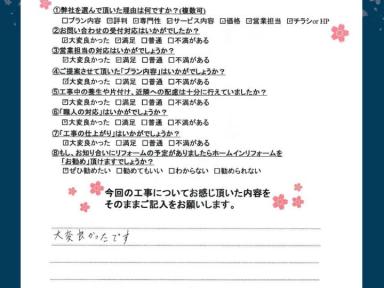 ①弊社を選んで頂いた理由は何ですか?(複数可)
□プラン内容 ☑評判 ☑専門性 ☑サービス内容 ☑価格 ☑営業担当 ☑チラシorHP
②お問い合わせの受付対応はいかがでしたか?
☑大変良かった ☑満足 □普通 □不満がある
③営業担当の対応はいかがでしょうか?
☑大変良かった □満足 □普通 □不満がある
④ご提案させて頂いた「プラン内容」はいかがでしょうか?
☑大変良かった □満足 □普通 □不満がある
⑤工事中の養生や片付け、近隣への配慮は十分に行えていましたか?
☑大変良かった □満足 □普通 □不満がある
⑥「職人の対応」はいかがでしょうか?
☑大変良かった □満足 □普通 □不満がある
⑦「工事の仕上がり」はいかがでしょうか?
☑大変良かった □満足 □普通 □不満がある
⑧もし、お知り合いにリフォームの予定がありましたらホームインリフォームを
「お勧め」頂けますでしょうか?
☑ぜひ勧めたい □勧めてもいい □わからない □勧められない
今回の工事についてお感じ頂いた内容を
そのままご記入をお願いします。
大変良かったです